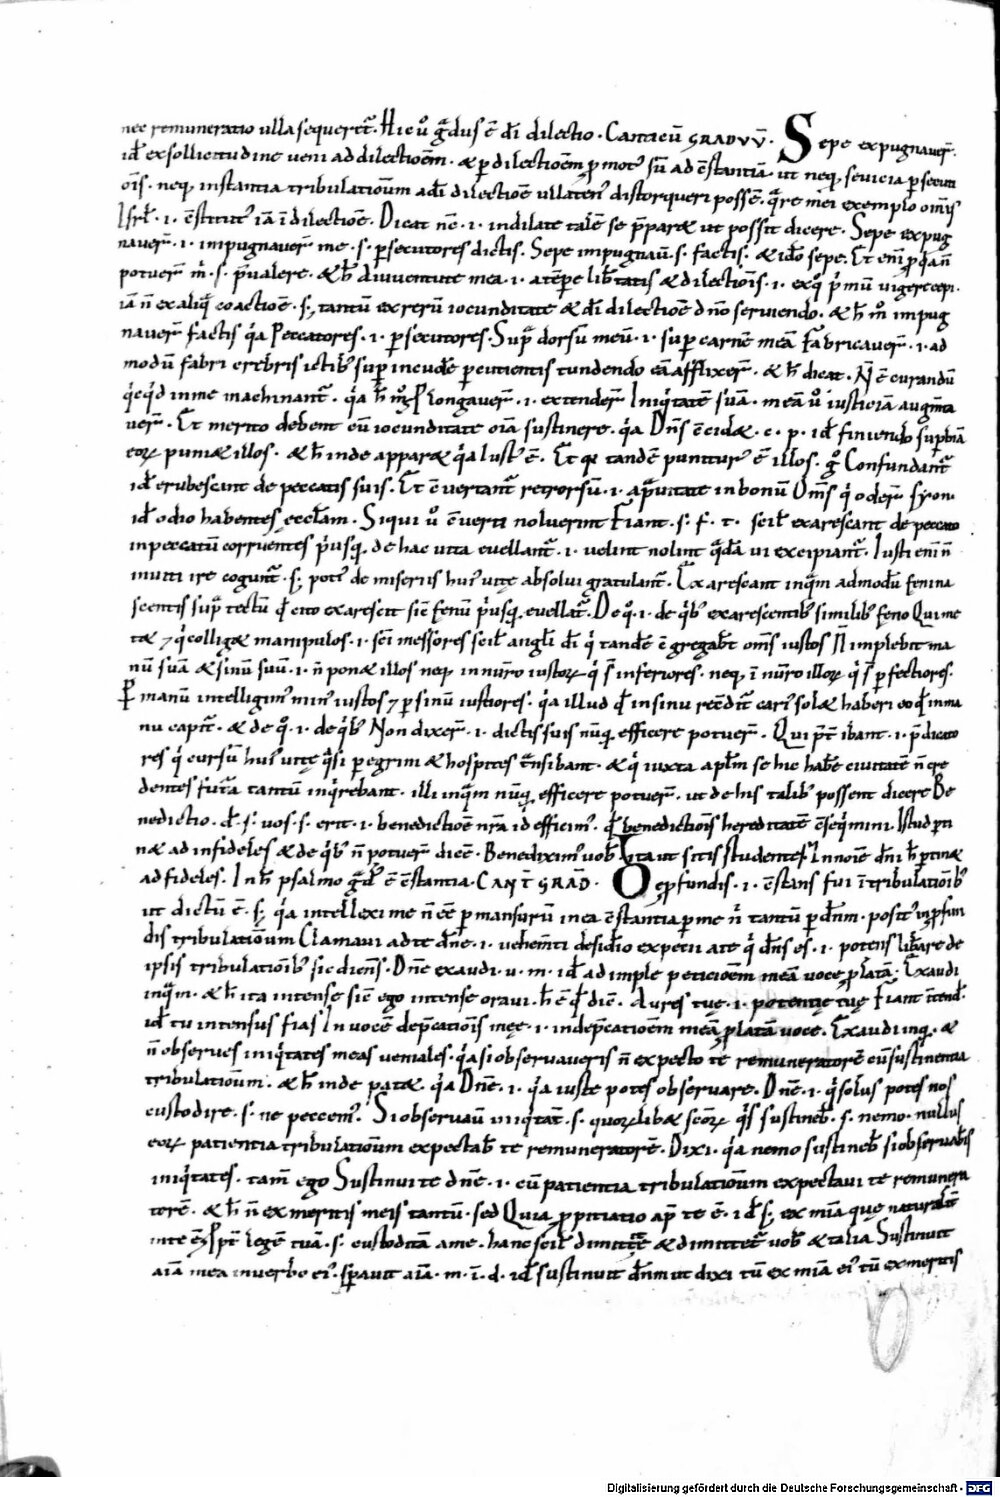 nec remuneratio ulla sequeret̃. Hic ů g̃dus ē dī dilectio. Canticū GRADVV̄. Sepe expugnauer̄.
id̄ ex sollicitudine ueni ad dilectioēm. & p̱ dilectioēm p̱motꝰ sū ad c̄stantiā ut neq; seuicia p̱secuti
ōis. neq; instantia tribulationum a dī dilectiōe ullatenꝰ distorqueri possē. q̃re mei exemplo om̄is
Isrł. .i. c̄stitutꝰ iā ī dilectiōe. Dicat nc̄ .i. in dilate talē se p̄par& ut possit dicere. Sepe expug
nauer̄ .i. impugnauer̄ me .s. p̱secutores dictis. Sepe impugnaū .s. factis. & ido sepe. Et eni
potuer̄ m̄ .s. p̄ualere. & h̄ a iuuentute mea .i. a tēp̱e lib̄tatis & dilectiōis .i. ex qͦ p̱mū uigere cepi.
iā n̄ ex aliq̃ coactiōe. s; tantū ex rerū iocunditate & dī dilectiōe dn̄o seruiendo. & h̄ mͦ impug
nauer̄ factis q̇a Peccatores .i. p̱secutores. Sup̃ dorsū meū .i. sup̱ carnē meā fabricauer̄ .i. ad
modū fabri crebris ictibꝰ sup̱ incudē p̱cutientis tundendo eā afflixer̄. & h̄ dicat. N̄ ē curandū
q̇cq̇d in me machinant̃. q̇a h̄ mͦ Plongauer̄ .i. extender̄ Iniq̇tatē suā. meā ů iusticiā augm̄ta
uer̄. Et merito debent cū iocunditate oīa sustinere. q̇a Dn̄s c̄cid&. c. p. id̄ finiendo sup̱biā
eoꝝ puni& illos. & h̄ inde appar& q̇a Iustꝰ ē. Et qr tandē puniturꝰ ē illos. gͦ Confundant̃
id̄ erubescant de peccatis suis. Et c̄uertant̃ retrorsū .i. a p̃uitate in bonū Om̄s q̇ oder̄ syon
id̄ odio habentes eccłam. Si qui ů c̄uerti noluerint Fiant .s. f. t. scil& exarescant de peccato
in peccatū corruentes p̱usq; de hac uita euellant̃ .i. uelint nolint q̃dā ui excipiant̃. Iusti eni n̄
inuiti ire cogunt̃. s; potiꝰ de miseriis huiꝰ uitę absolui gratulant̃. Exarescant inq̃m ad modū feni na
scentis sup̃ tectū qd̄ cito exarescit sic fenū p̱usq; euellat̃. De qͦ .i. de q̇bꝰ exarescentibꝰ similibꝰ feno Qui me
t& ⁊ q̇ collig& manipulos .i. sc̄i messores scil& angłi dī q̇ tandē c̄gregab̄t om̄s iustos N̄ implebit ma
nū suā & sinū suū .i. n̄ pon& illos neq; in nūro iustoꝝ q̇ s̄t inferiores. neq; ī nūro illoꝝ q̇ s̄t p̱fectiores.
P̱ manū intelligimꝰ minꝰ iustos ⁊ p̱ sinū iustiores. q̇a illud qd̄ in sinu recōdit̃ cariꝰ sol& haberi eo qd̄ in ma
nu capit̃. & de qͦ .i. de q̇bꝰ Non dixer̄ .i. dictis suis nūq; efficere potuer̄. Qui p̱t̄ ibant .i. p̄dicato
res q̇ cursū huiꝰ uitę q̃si p̱egrini & hospites t̃nsibant. & q̇ iuxta apłm se hic habē ciuitatē n̄ cre
dentes fut̃a tantū inq̇rebant. illi inq̃m nūq; efficere potuer̄. ut de his talibꝰ possent dicere Be
nedictio. d. s. uos .s. erit .i. benedictiōe nr̃a id efficimꝰ. qd̄ benedictiōis hereditatē c̄seq̇mini. Istud p̱ti
n& ad infideles & de q̇bꝰ n̄ potuer̄ dicē. Benediximꝰ uob̄ Ita ut sitis studentes. In noīe dn̄i h̄ p̱tin&
ad fideles. In h̄ psalmo g̃dꝰ ē c̄stantia. CANT̄ GRAD̄. De p̱fundis .i. c̄stans fui ī tribulatioībꝰ
ut dictū ē. s; q̇a intellexi me n̄ ēē p̱mansurū in ea c̄stantia p̱ me n̄ tantū p̱ dn̄m. positꝰ in p̱fun
dis tribulationum Clamaui ad te dn̄e .i. uehem̄ti desid̄io expetii a te q̇ dn̄s es .i. potens lib̄are de
ipsis tribulatioībꝰ sic dicens. Dn̄e exaudi. u. m. id̄ adimple peticioēm meā uoce p̱latā. Exaudi
inq̃m. & h̄ ita intense sic ego intense oraui. h̄ ē qd̄ dic̄. Aures tuę .i. potentię tuę Fiant ītend̄.
id̄ tu intensus fias In uocē dep̄cationis męę .i. in dep̄catioēm meā p̱latā uoce. Exaudi inq;. &
n̄ obserues iniq̇tates meas ueniales. q̇a si obseruaueris n̄ expecto te remuneratorē cū sustinentia
tribulationum. & h̄ inde pat&. q̇a Dn̄e .i. q̇a iuste potes obseruare. Dn̄e .i. q̇ solus potes nos
custodire .s. ne peccemꝰ. Si obseruaū iniq̇tat̄ .s. quoꝝlib& sc̄oꝝ q̇s sustineb̄ .s. nemo. nullus
eoꝝ patientia tribulationum expectab̄ te remuneratorē. Dixi. q̇a nemo sustineb̄ si obseruab̄is
iniq̇tates. tam̄ ego Sustinui te dn̄e .i. cū patientia tribulationum expectaui te remunera
torē. & h̄ n̄ ex meritis meis tantū. sed Quia p̱pitiatio ap̱ te ē. id̄ s; ex mīa que naturalit̄
in te ē. Et Pp̱t̄ legē tuā .s. custoditā a me. hanc scil& dimitt̃ & dimittet̃ uob̄ & talia Sustinuit
aīa mea in uerbo eiꝰ. sp̱auit aīa. m. ī. d. id̄ sustinuit dn̄m ut dixi tū ex mīa eiꝰ tū ex meritis
Digitalisierung gefördert durch die Deutsche Forschungsgemeinschaft - DFG